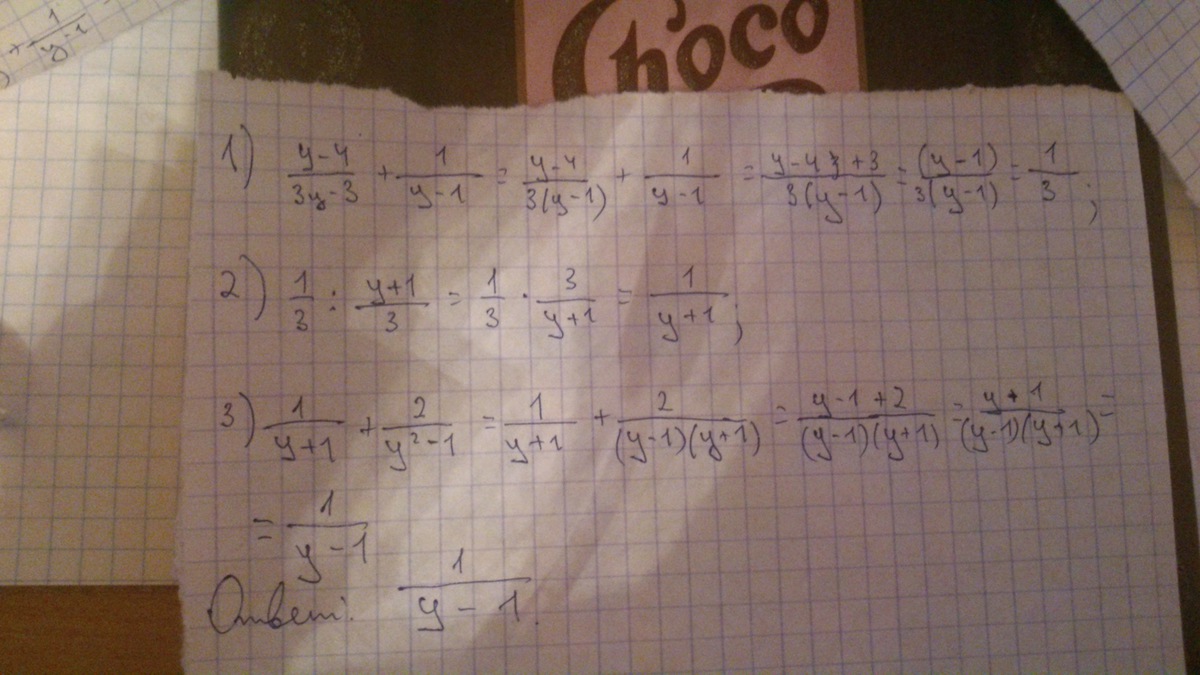 + 1/(y-1)
Choco
1) (y-4)/(3y-3) + 1/(y-1) = (y-4)/(3(y-1)) + 1/(y-1) = (y-4+3)/(3(y-1)) = (y-1)/(3(y-1)) = 1/3;
2) 1/3 : (y+1)/3 = 1/3 · 3/(y+1) = 1/(y+1);
3) 1/(y+1) + 2/(y²-1) = 1/(y+1) + 2/((y-1)(y+1)) = (y-1+2)/((y-1)(y+1)) = (y+1)/((y-1)(y+1)) =
= 1/(y-1)
Ответ: 1/(y-1).